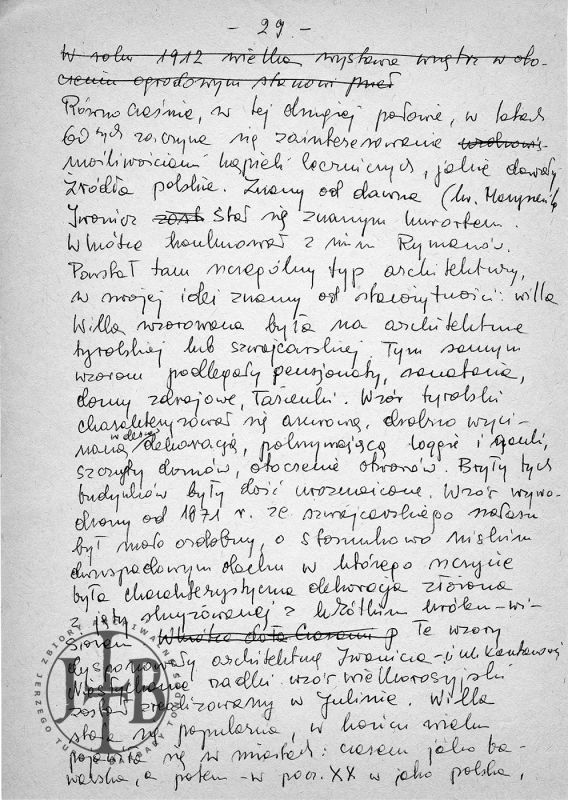 - 29 -
W roku 1912 wielka wystawa wnętrz w oto-
czeniu ogrodowym stanowi
Równocześnie, w tej drugiej połowie, w latach
60 tych zaczyna się zainteresowanie
możliwościami kąpieli leczniczych, jakie dawały
źródła polskie. Znany od dawna (kr. Marysieńka
Iwonicz został stał się znanym kurortem.
Wkrótce konkurował z nim Rymanów.
Powstał tam szczególny typ architektury,
w swojej idei znany od starożytności: willa
Willa wzorowana była na architekturze
tyrolskiej lub szwajcarskiej. Tym samym
wzorom podlegały pensjonaty, sanatoria,
domy zdrojowe, łazienki. Wzór tyrolski
charakteryzował się ażurową, drobno wyci-
naną w desce dekoracją, pokrywającą loggie i ganki,
szczyty domów, otoczenie otworów. Bryły tych
budynków były dość urozmaicone. Wzór wywo-
dzony od 1871 r. ze szwajcarskiego szałasu
był mało ozdobny, o stosunkowo niskim
dwuspadowym dachu w którego szczycie
była charakterystyczna dekoracja złożona
z jęty skrzyżowanej z krótkim królem - wi-
szarem. Wkrótce doła Te wzory
dyspanowały architekturę Iwonicza-
rzadki wzór wielkorosyjski
został zrealizowany w Julinie. Willa
stała się popularna, w końcu wieku
pojawia się w miastach: czasem jako ba-
warska, a potem - w pocz. XX w jako polska,
JERZEGO TUR
ZBIORY
JTB